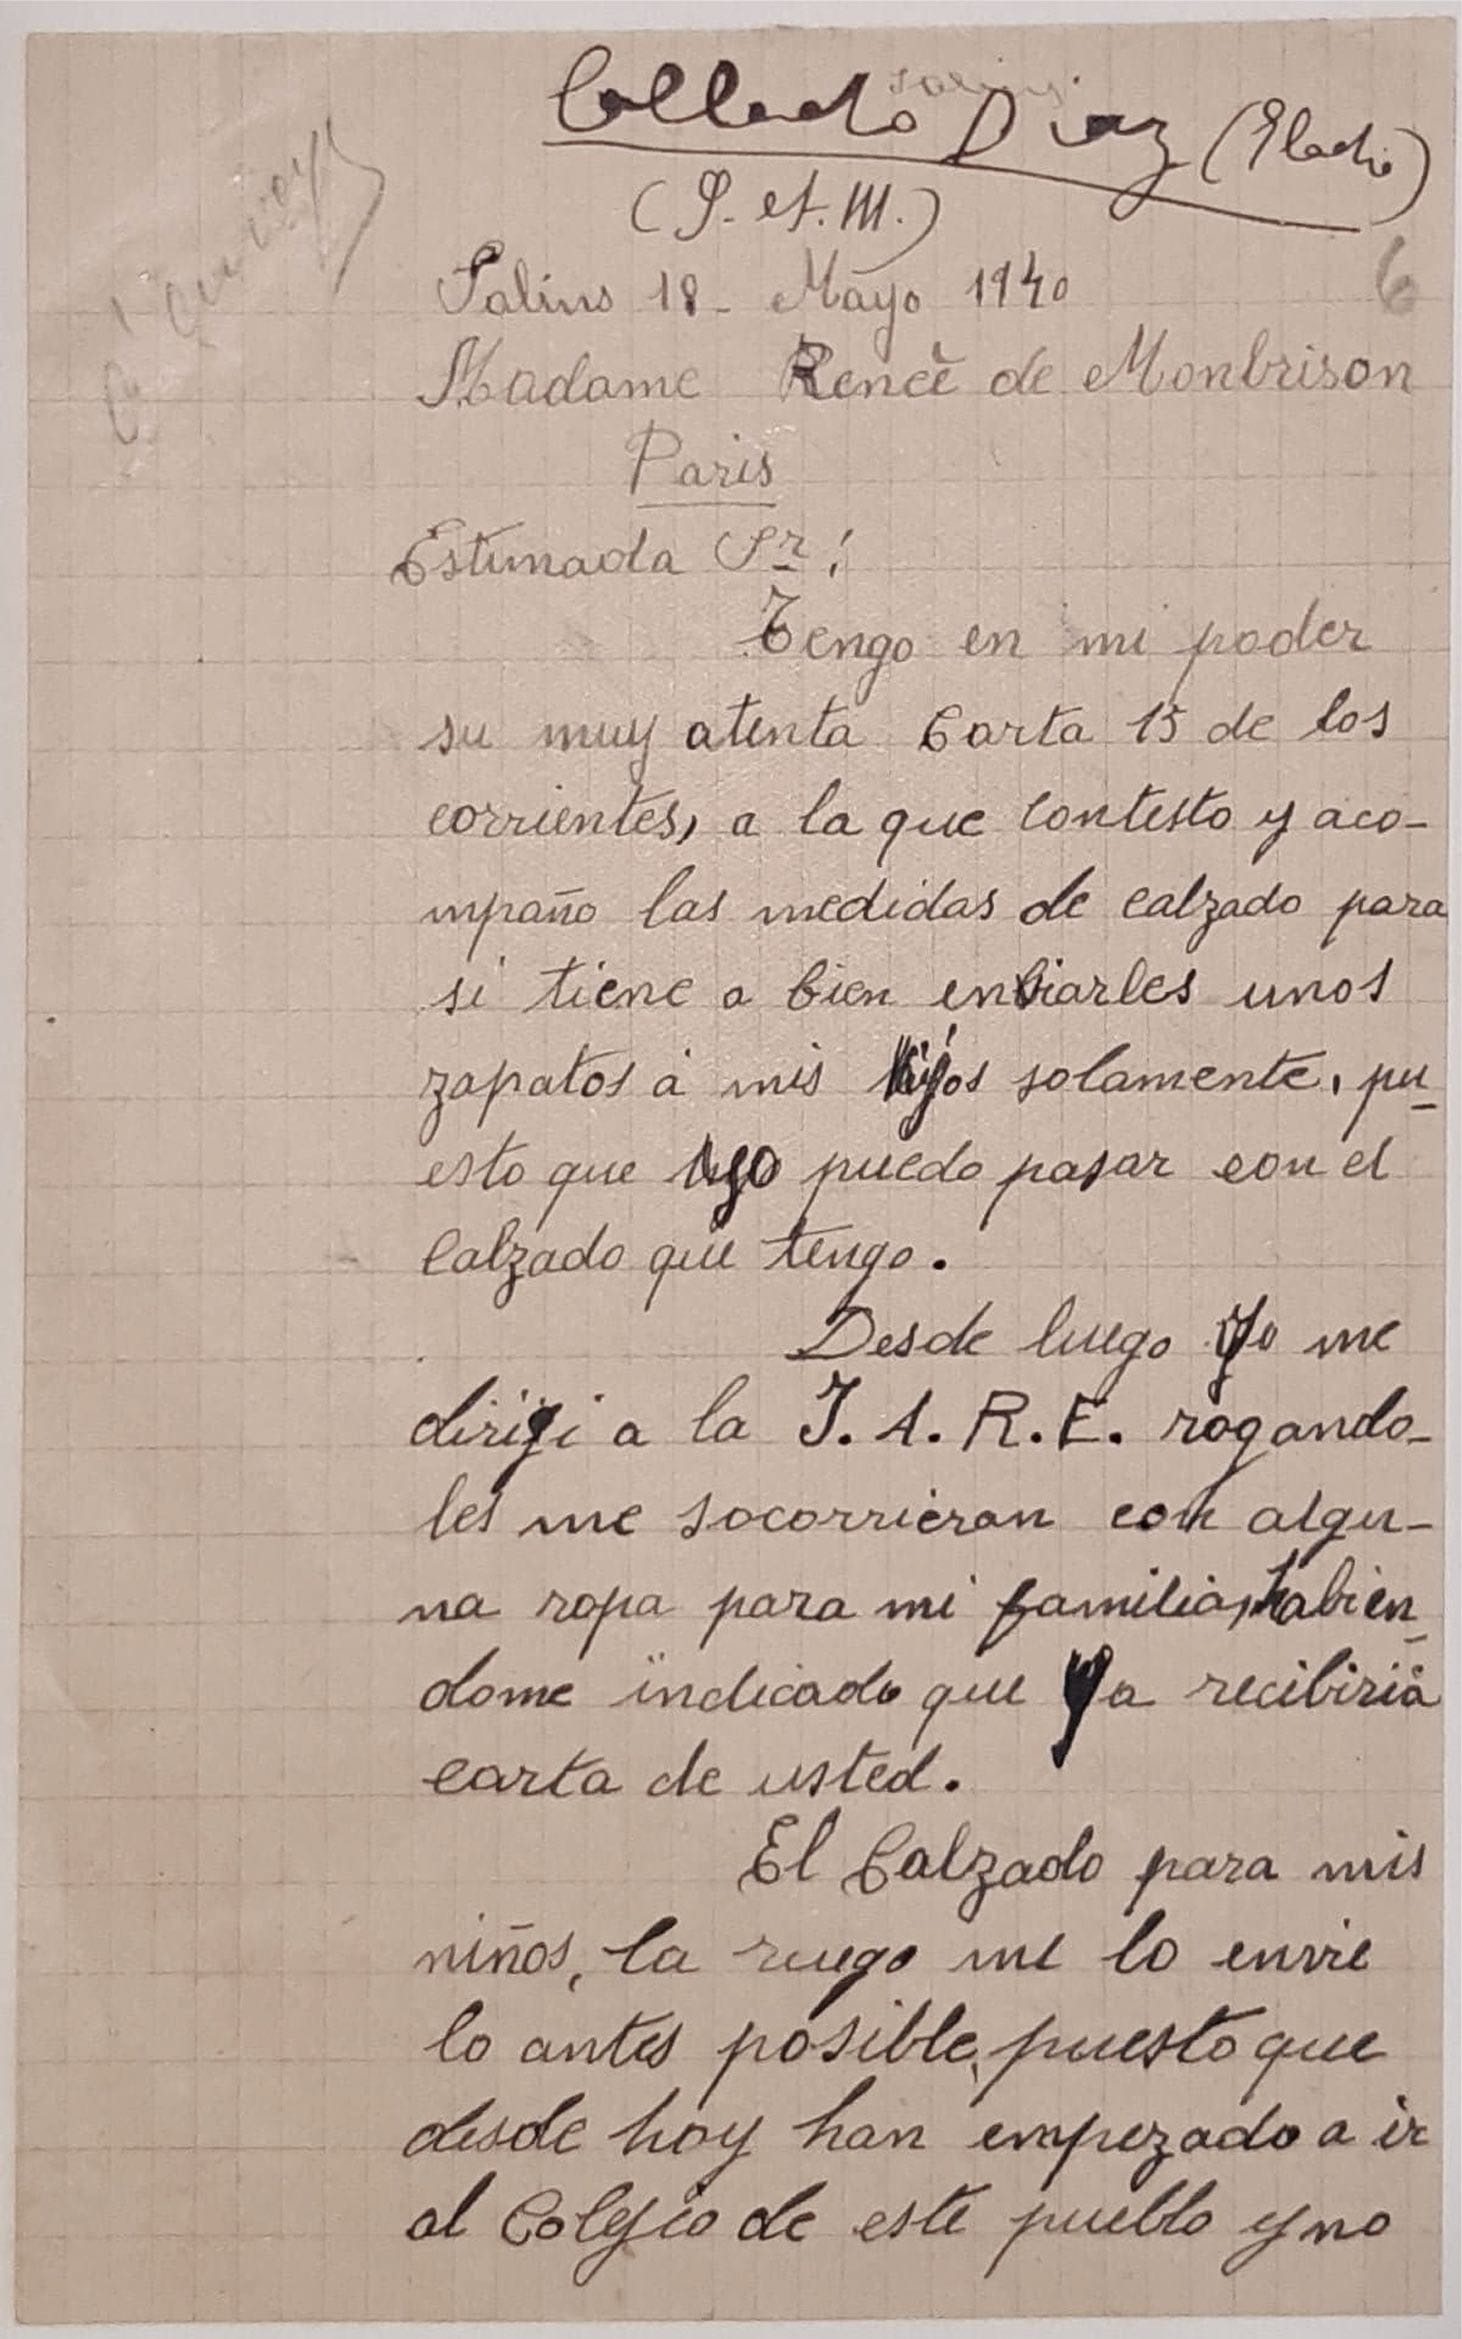 Collado Diaz (Eladio)
Salins
(S. et. M.)
6
Salins 18 - Mayo 1940
Madame Reneè de Monbrison
Paris
Estimada Sr!
Tengo en mi poder
su muy atenta Carta 15 de los
corrientes, a la que Contesto y aco-
mpaño las medidas de calzado para
si tiene a bien enbiarles unos
zapatos á mis hijos solamente, pu-
esto que yo puedo pasar con el
Calzado que tengo.
Desde luego yo me
dirigi a la J. A. R. E. rogando-
les me socorrieran con algu-
na ropa para mi familia, habien-
dome indicado que ya recibiria
carta de usted.
El Calzado para mis
niños, la ruego me lo envie
lo antes posible, puesto que
desde hoy han empezado a ir
al Colegio de este pueblo y no